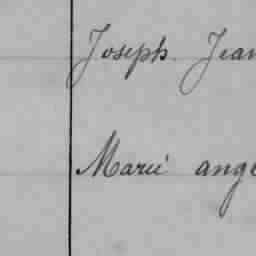 Joseph Jean
Marie ange